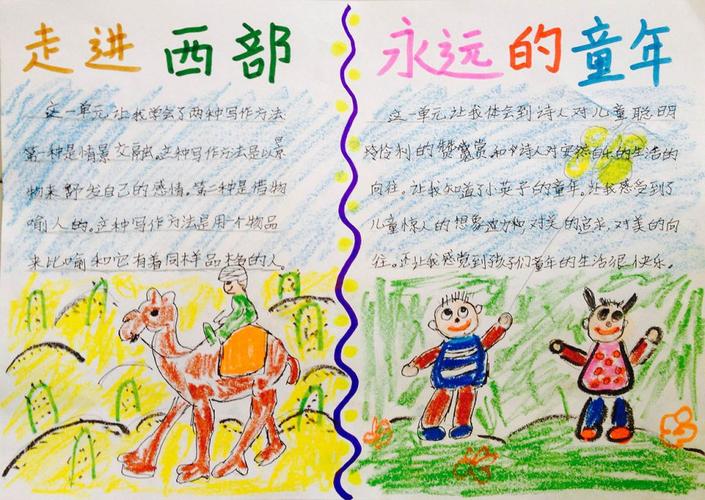 走进西部
这一单元让我学会了两种写作方法
第一种是情景交融,这种写作方法是以景
物来抒发自己的感情。第二种是借物
喻人的。这种写作方法是用一个物品
来比喻和它有着同样品格的人。
永远的童年
这一单元让我体会到诗人对儿童聪明
伶俐的赞赏和诗人对安德自乐的生活的
向往。让我知道了小英子的童年。让我感受到了
儿童惊人的想象力和对美的追求,对美的向
往。还让我感觉到孩子们童年的生活很快乐。